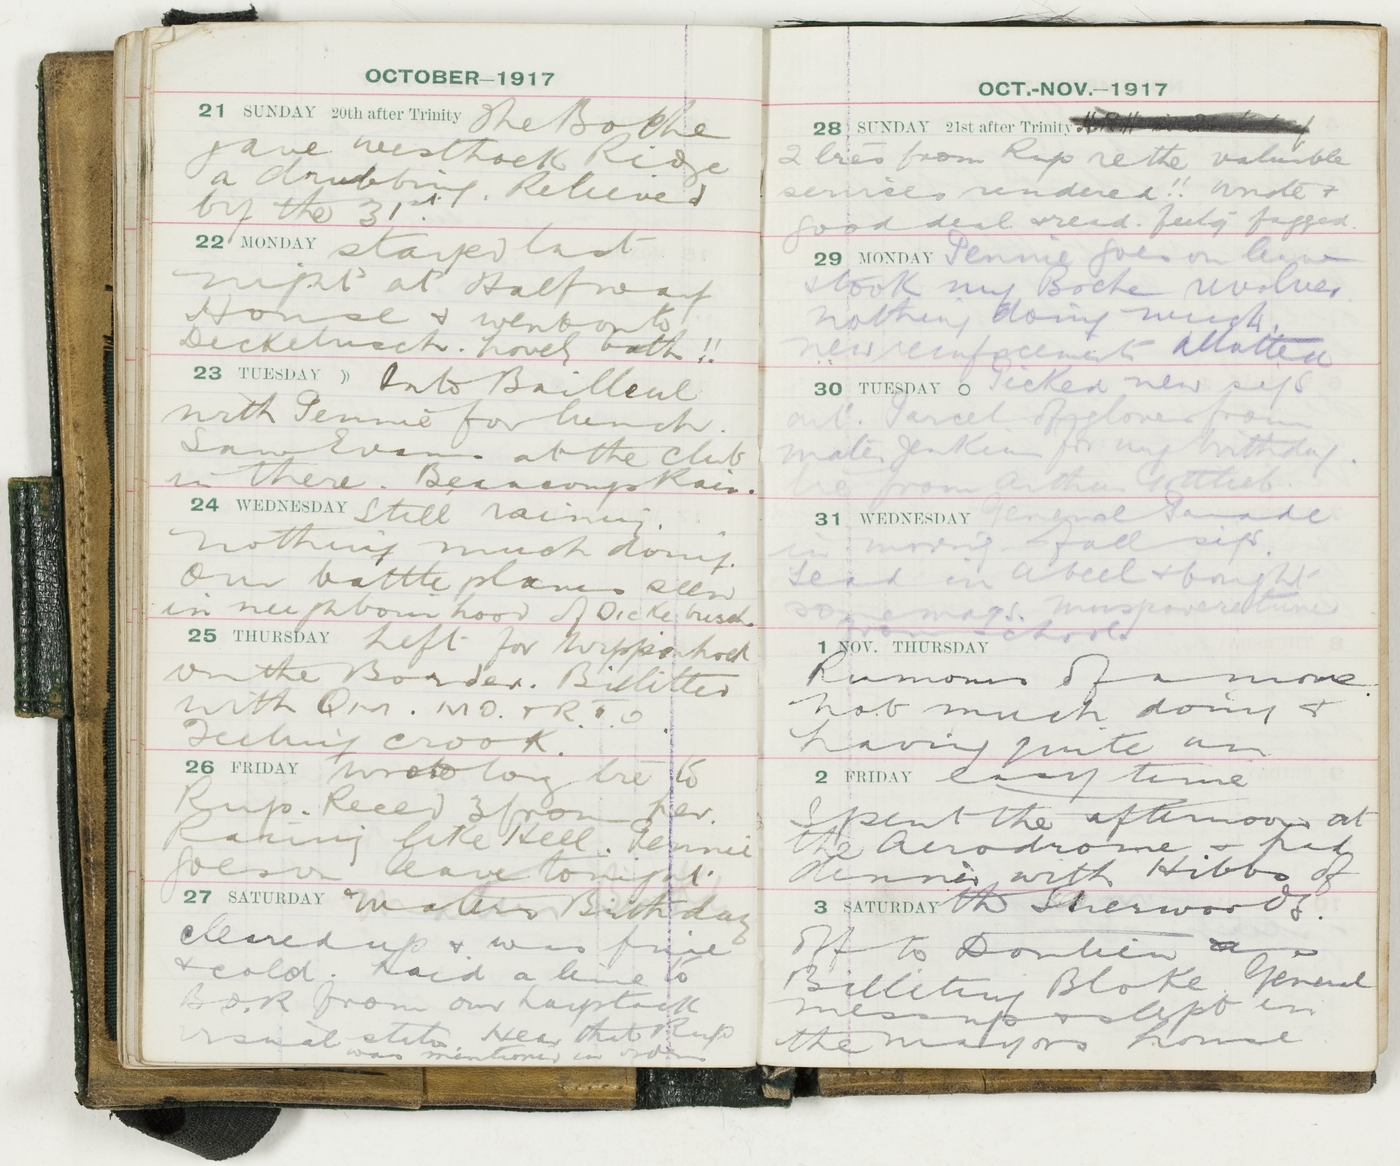 OCTOBER—1917
21 SUNDAY 20th after Trinity The Boche
gave Westhoek Ridge
a drubbing. Relieved
by the 31st.
22 MONDAY stayed last
night at Halfway
House & went onto
Dickebusch. hovel bath!!
23 TUESDAY Into Bailleul
with Pennie for lunch.
Saw Evans at the club
in there. Rain.
24 WEDNESDAY Still raining.
nothing much doing.
Our battle planes seen
in neighbourhood of Dickebusch.
25 THURSDAY Left for Wippenhoek
on the Border. Billetted
with QM. MO. & R.T.O.
Feeling crook.
26 FRIDAY Wrote long lre to
Rup. Recd 3 from her.
Raining like Hell. Pennie
goes on leave tonight.
27 SATURDAY Maters Birthday
cleared up & was fine
& cold. Laid a line to
B.O.R from our haystack
visual statn. Hear that Rup
was mentioned in orders
OCT.-NOV.—1917
28 SUNDAY 21st after Trinity
2 lres from Rup re the valuable
services rendered!! wrote a
good deal & read. feelg fagged.
29 MONDAY Pennie goes on leave
& took my Boche revolver.
nothing doing much.
new reinforcements allotted
30 TUESDAY Picked new sigs
out. Parcel of gloves from
mater Jenkins for my birthday.
lre from Arthur Gottlieb.
31 WEDNESDAY General Parade
in morng & all sigs.
Lead in Abeele & bought
some mags.
from school
1 NOV. THURSDAY
Rumours of a move.
not much doing &
having quite an
2 FRIDAY easy time
Spent the afternoon at
the Aerodrome & had
dinner with Hibbs of
3 SATURDAY the Sherwoods.
Off to Doulieu as
Billeting Bloke. General
messup & slept in
the mayors house